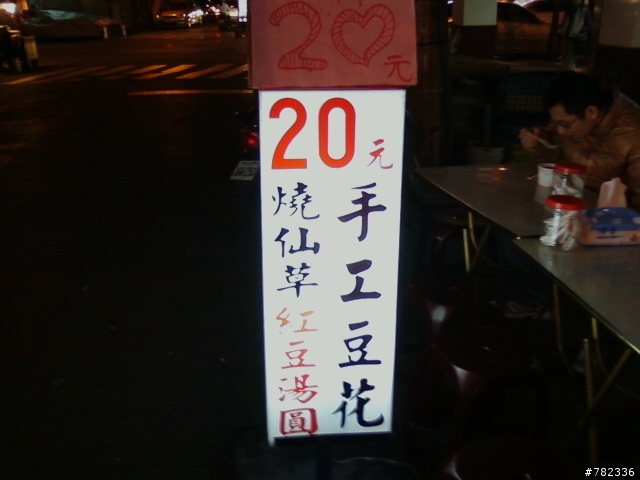 20元
20元
手工豆花
燒仙草
紅豆湯圓
#782336